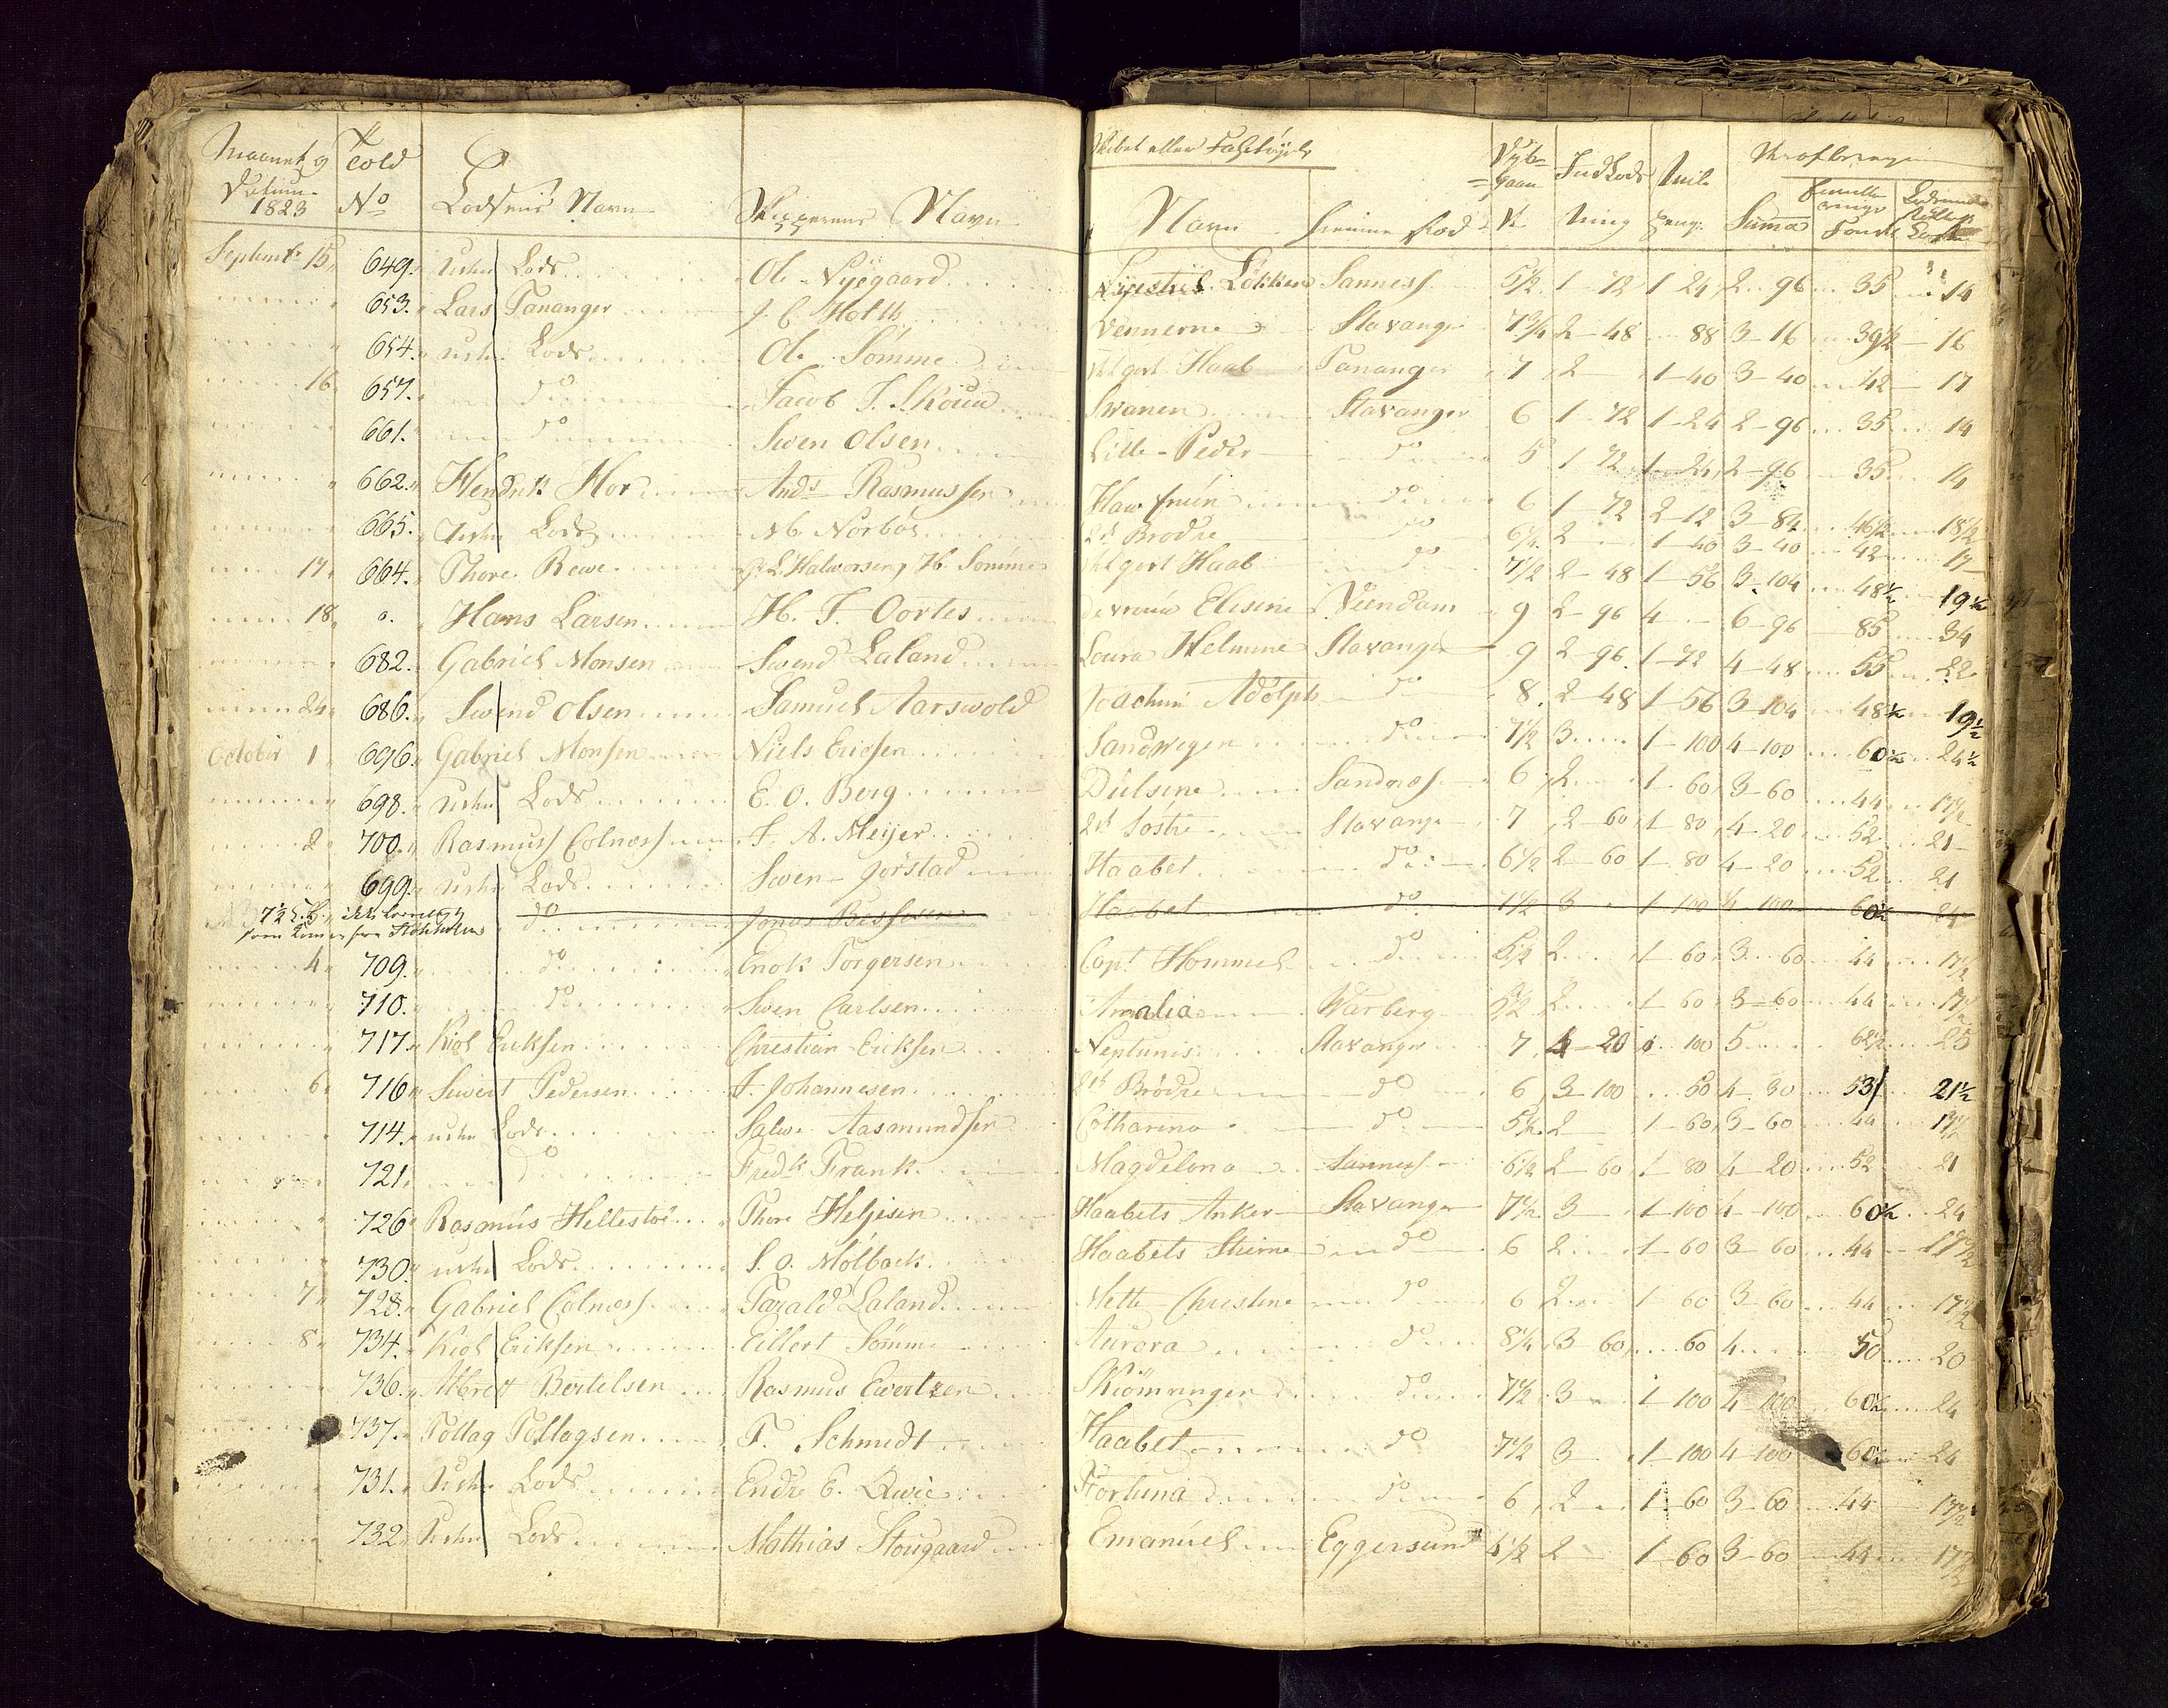 Maanet og Datum 1823 Told No Lodsens Navn Skipperens Navn
Skibet eller Fahrtøyets Navn Hiemme Sted Dybgaaende Indlods ning Miile penge Summa
Septembr 15 649. Lods Ole Nÿegaard Løkken Sanness 5 1/2 1 72 1 24 2 96 35 14
653. Lars Tananger J. C. Holth Vennerne Stavanger 7 3/4 2 48 88 3 16 39 1/2 16
654. Lods Ole Sömme Haab Tananger 7 2 1 40 3 40 42 17
16 657. do Jacob J. Skoua Svanen Stavanger 6 1 72 1 24 2 96 35 14
661. do Swen Olsen Lille Peder do 5 1 72 1 24 2 96 35 14
662. Hendrik Hor Ands Rasmussen Hawfruen do 6 1 72 2 12 3 84 46 1/2 18 1/2
665. Lods Norboe 2de Brødre do 6 1/4 2 1 40 3 40 42 17
17 664. Thore Rewe L. Halworsen, H. Sömme Haab do 7 1/2 2 48 1 56 3 104 48 1/2 19 1/2
18 Hans Larsen H. J. Oortes de vrouw Elisene Veendam 9 2 96 4 6 96 85 34
682. Gabriel Monsen Swend Laland Loura Helmine Stavanger 9 2 96 1 72 4 48 55 22
24 686. Swend Olsen Samuel Aarswold Joachim Adolph do 8 2 48 1 56 3 104 48 1/2 19 1/2
October 1 696. Gabriel Monsen Niels Ericsen Sandwegen do 7 1/2 3 1 100 4 100 60 1/2 24 1/2
698. Lods E. O. Berg Sandness 6 2 1 60 3 60 44 17 1/2
2 700. Rasmuss Colness J. A. Meijer 2de Söstre Stavanger 7 2 60 1 80 4 20 52 21
699. Lods Swen Jörstad Haabet do 6 1/2 2 60 1 80 4 20 52 21
do Jonas Haabet do 7 1/2 3 1 100 4 100 60 1/2 24
4 709. do Enok Torgersen Capt Hommel do 5 1/2 2 1 60 3 60 44 17 1/2
710. do Swen Carlsen Amalia Warberg 5 1/2 2 1 60 3 60 44 17 1/2
717. Kiol Ericksen Christian Ericksen Neptunis Stavanger 7 4 20 100 5 62 1/2 25
6 716 Siwert Pedersen J. Johannesen 2de Brødre do 6 3 100 50 4 30 53 21 1/2
714. Lods Salwe Aasmundsen Catharina do 5 1/2 2 1 60 3 60 44 17 1/2
721. do Fredk Frank Magdelena Sanness 6 1/2 2 60 1 80 4 20 52 21
726 Rasmus Hellestoe Thore Heljesen Haabets Anker Stavanger 7 1/2 3 1 100 4 100 60 1/2 24
730. Lods S. O. Mölback Haabets Stierne do 6 2 1 60 3 60 44 17 1/2
7 728. Gabriel Colness Tarald Laland Mette Christine do 6 2 1 60 3 60 44 17 1/2
8 734. Kiol Eriksen Eillert Sömme Aurora do 8 1/4 3 60 60 4 50 20
736. Albrett Bertelsen Rasmus Ewertzen do 7 1/2 3 1 100 4 100 60 1/2 24
737. Tollag Tollagsen F. Schmidt Haabet do 7 1/2 3 1 100 4 100 60 1/2 24
731. Lods Endre E. Fortuna do 6 2 1 60 3 60 44 17 1/2
732 Lods Mathias Stougaard Emanuel Eggersund 4 1/2 2 1 60 3 60 44 17 1/2